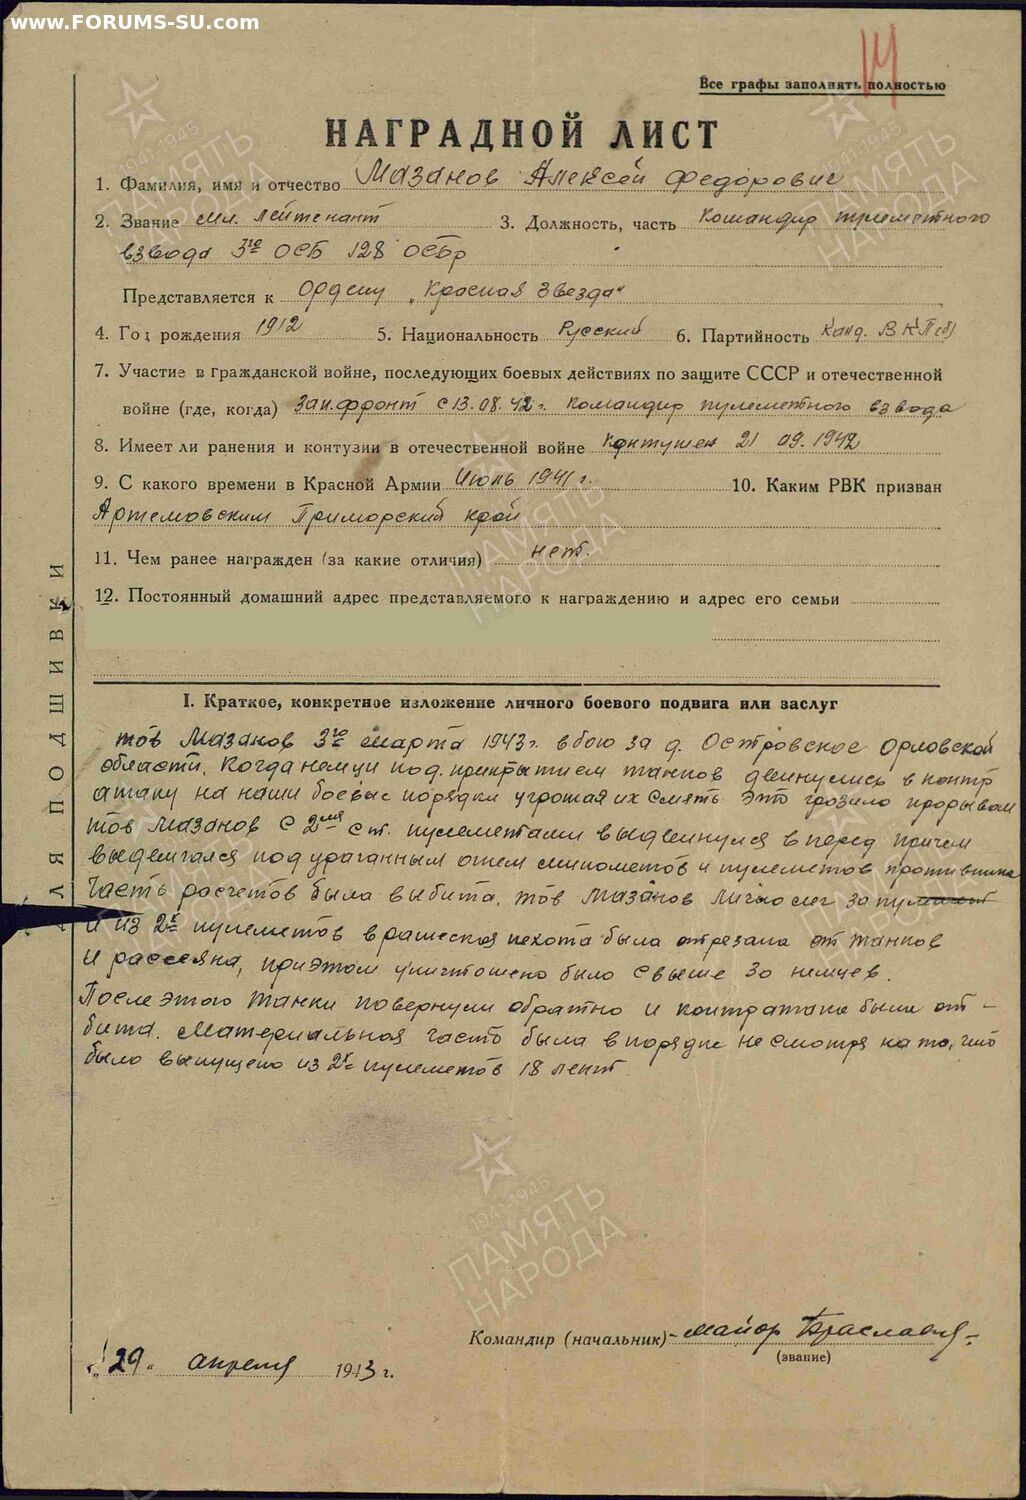 www.FORUMS-SU.com
14
Все графы заполнять полностью
НАГРАДНОЙ ЛИСТ
1. Фамилия, имя и отчество Мазанов Алексей Федорович
2. Звание мл. лейтенант 3. Должность, часть Командир пулеметного
взвода 3го ОСБ 128 ОСБр
Представляется к Ордену „Красная Звезда“
4. Год рождения 1912 5. Национальность Русский 6. Партийность Канд. ВКП(б)
7. Участие в гражданской войне, последующих боевых действиях по защите СССР и отечественной
войне (где, когда) Зап.фронт с 13.08.42 г. командир пулеметного взвода
8. Имеет ли ранения и контузии в отечественной войне Контужен 21 09.1942
9. С какого времени в Красной Армии Июль 1941 г. 10. Каким РВК призван
Артемовским Приморский край
11. Чем ранее награжден (за какие отличия) нет.
12. Постоянный домашний адрес представляемого к награждению и адрес его семьи
ДЛЯ ПОДШИВКИ
I. Краткое, конкретное изложение личного боевого подвига или заслуг
тов Мазанов 3го марта 1943г. в бою за д. Островское Орловской
области. Когда немци под. прикрытием танков двинулись в контр
атаку на наши боевые порядки угрожая их смять это грозило прорывом
тов Мазанов с 2мя ст. пулеметами выдвинулся вперед причем
выдвигался под ураганным огнем минометов и пулеметов противника
Часть расчетов была выбита. тов Мазанов лично лег за пулемет
и из 2х пулеметов вражеская пехота была отрезана от танков
и рассеяна, при этом уничтожено было свыше 30 немцев.
После этого танки повернули обратно и контратака была от-
бита. Материальная часть была в порядке не смотря на то, что
было выпущено из 2х пулеметов 18 лент.
Командир (начальник) майор
(звание)
„29“ апреля 1943 г.
1941-1945
ПАМЯТЬ
НАРОДА